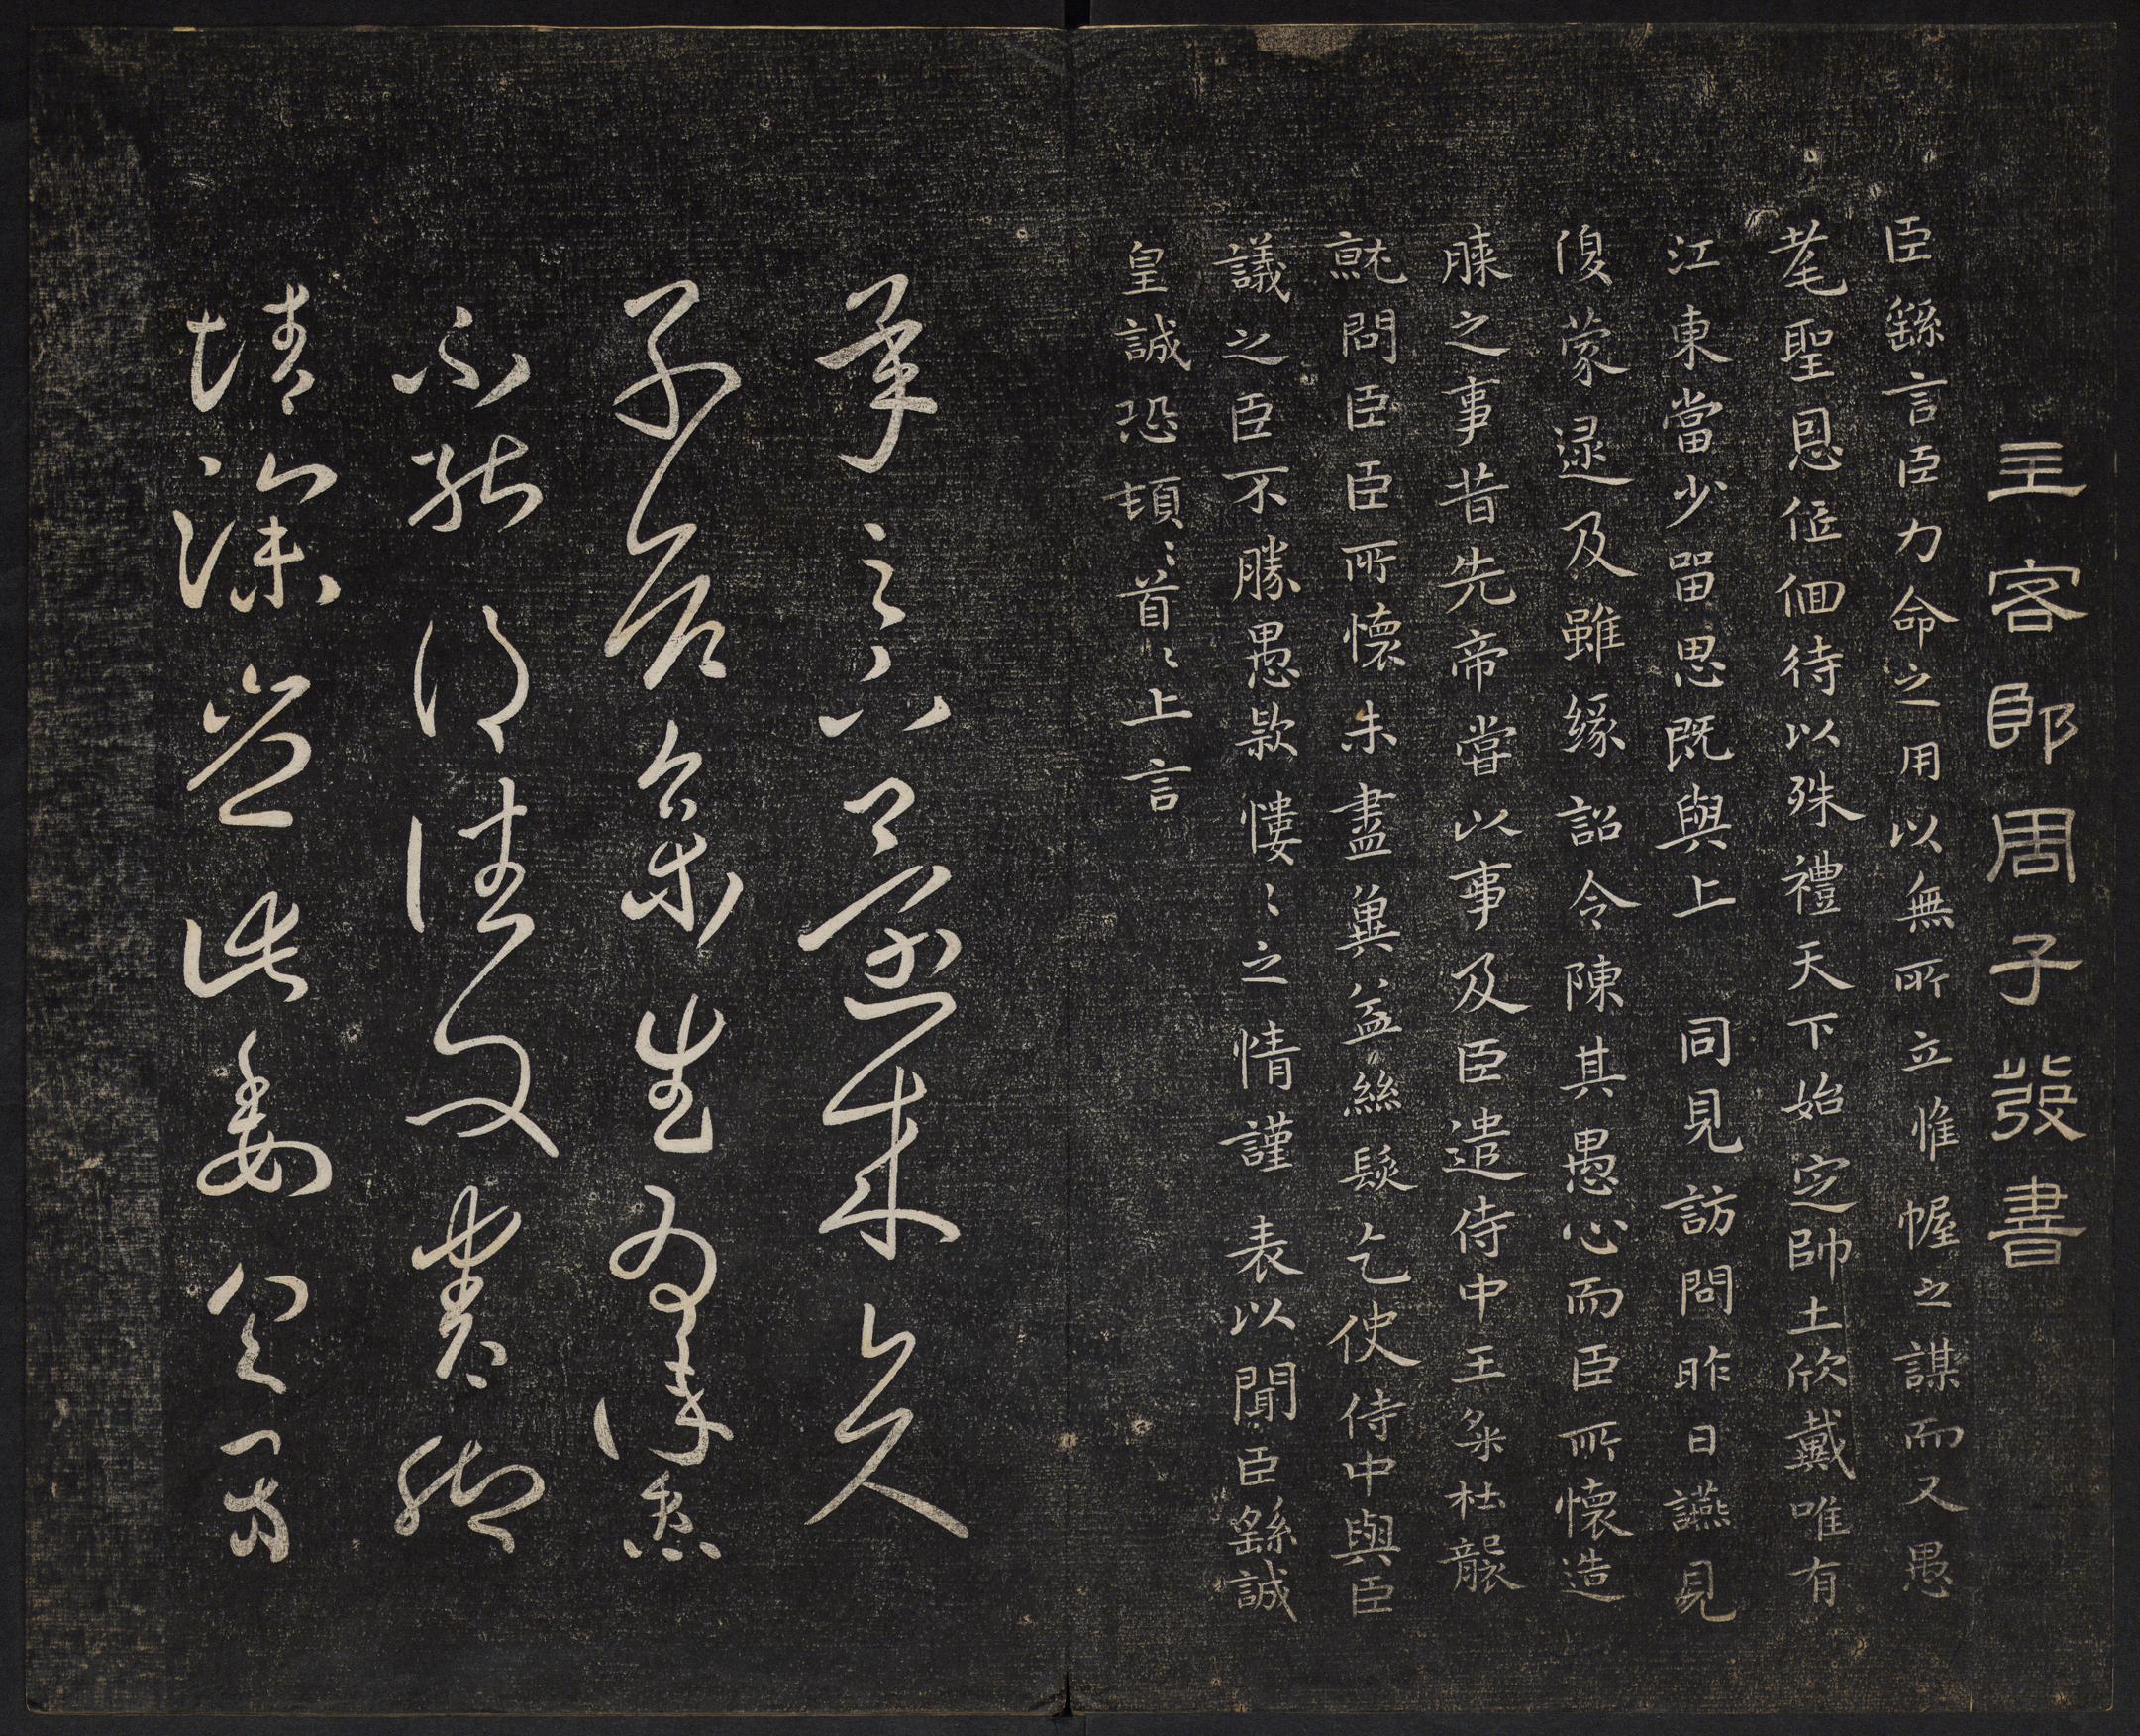 主客郎周子發書
臣繇言臣力命之用以無所立惟幄之謀而又愚
耄聖恩低佪待以殊禮天下始定帥土欣戴唯有
江東當少留思既與上 同見訪問昨日讌見
復蒙逮及雖緣詔令陳其愚心而臣所懷造
膝之事昔先帝嘗以事及臣遣侍中王粲杜襲
就問臣臣所懷未盡冀益絲髮乞使侍中與臣
議之臣不勝愚款慺〻之情謹表以聞臣繇誠
皇誠恐頓〻首〻上言
承足下還來久
參為染患
不能得往眷仰
情深豈此委具